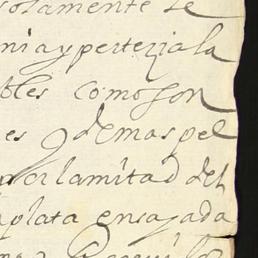 solamente se
nia y pertezia la
bles como son
es y demas pel
por la mitad del
plata ensayada